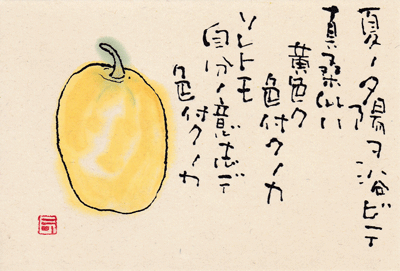 夏ノ夕陽ヲ浴ビテ
真桑瓜ハ
黄色ク
色付クノカ
ソレトモ
自分ノ意志デ
色付クノカ